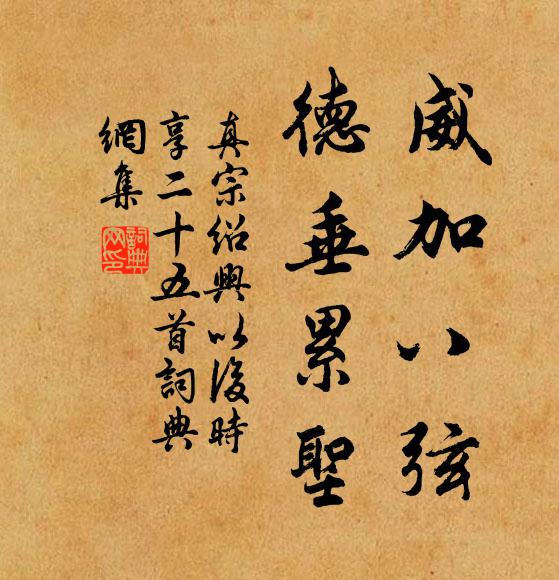 威加八弦
德垂累聖
真宗紹興以後時
享二十五首詞典
網集
詞典網印